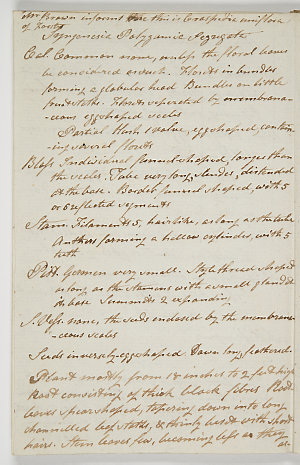 Mr Brown informs me this is Craspedia uniflora
of Forst
Syngenesia Polygamia Segregata
Cal. Common none, unless the floral leaves
be considered as such. Florets in bundles
forming a globular head Bundles on little
fruitstalks. Florets seperated by membrana-
-ceous eggshaped scales
Partial 1 valve, eggshaped, contain-
ing several florets
Bloss. Individual funnel shaped, longer than
the scales. Tube very long, slender, distended
at the base. Border funnel shaped, with 5
or 6 reflected segments
Stam. Filaments 5, hairlike, as long as the tube
Anthers forming a hollow cylinder, with 5
teeth
Pist. Germen very small. Style thread shaped
as long as the stamens with a small gland at
its base Summits 2 expanding
S. Vess. none, the seeds enclosed by the membrana-
-ceous scales
Seeds inversely-eggshaped Down long feathered.
Plant mostly from 18 inches to 2 feet high
Root consisting of thick black fibres Root
leaves spearshaped, tapering down into long
channelled leaf stalks, & thinly beset with short
hairs. Stem leaves few, becoming less as they